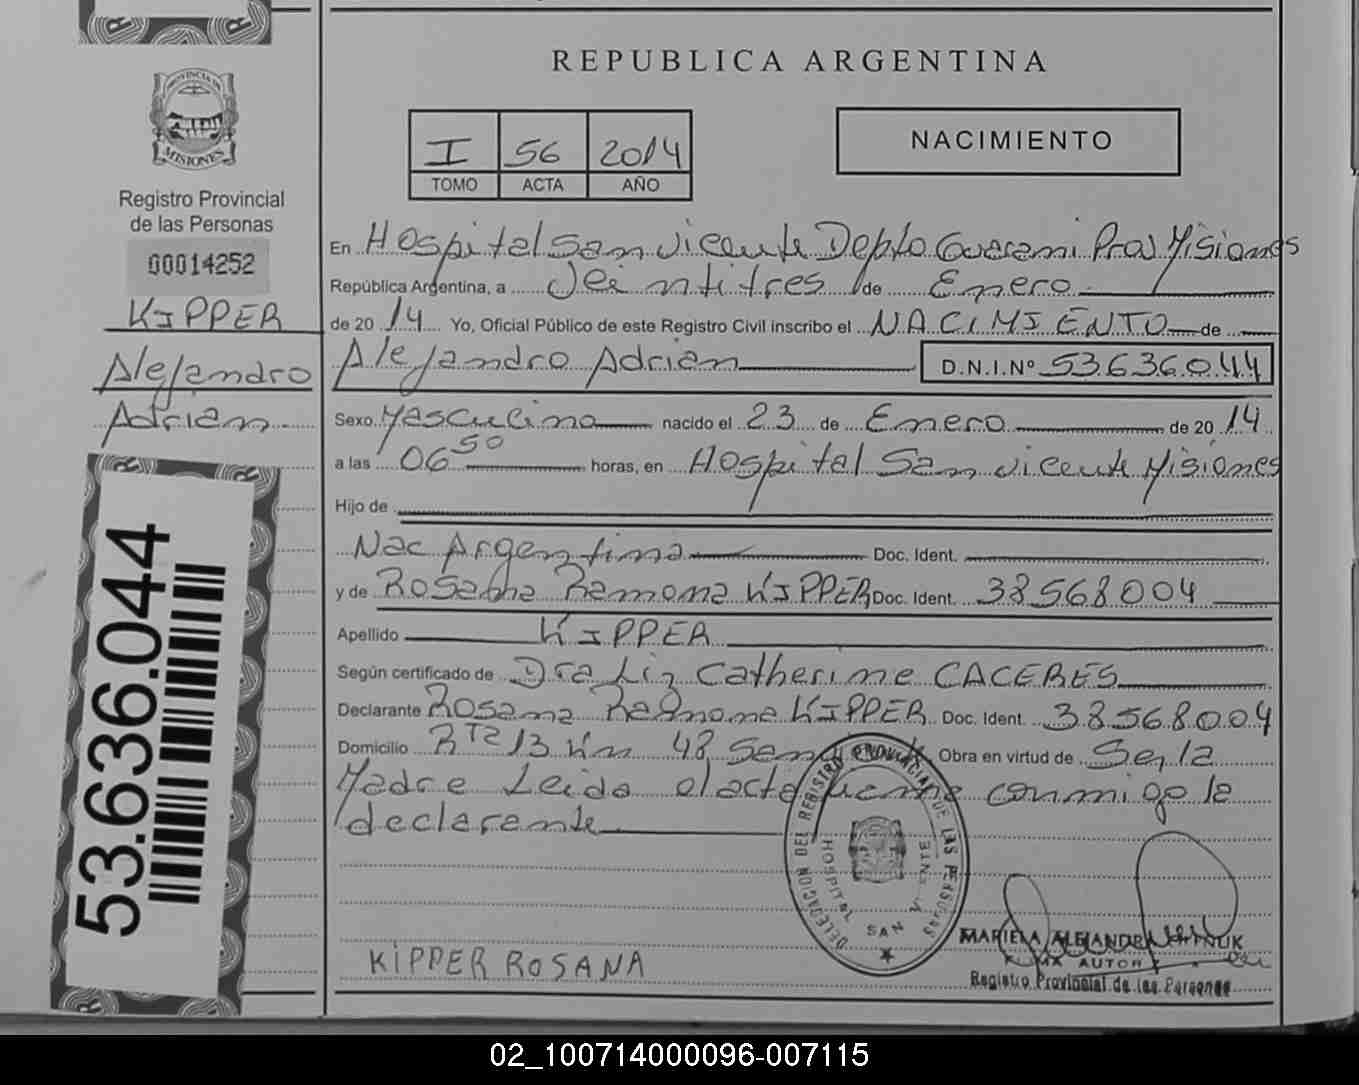 PROVINCIA DE
MISIONES
Registro Provincial
de las Personas
00014252
KIPPER
Alejandro
Adrian
53.636.044
REPUBLICA ARGENTINA
I 56 2014
TOMO ACTA AÑO
NACIMIENTO
En Hospital San Vicente Depto Guarani Prov Misiones
República Argentina, a Veintitres de Enero
de 2014 Yo, Oficial Público de este Registro Civil inscribo el NACIMIENTO de
Alejandro Adrian D.N.I.Nº 53.636.044
Sexo Masculino nacido el 23 de Enero de 2014
a las 06 50 horas, en Hospital San Vicente Misiones
Hijo de
Nac Argentina Doc. Ident.
y de Rosana Ramona KIPPER Doc. Ident. 38568004
Apellido KIPPER
Según certificado de Dra Liz Catherine CACERES
Declarante Rosana Ramona KIPPER Doc. Ident. 38568004
Domicilio Rta 13 Km 48 San Obra en virtud de Ser la
Madre Leida el acta firma conmigo la
declarante
DELEGACION DEL REGISTRO PROVINCIAL DE LAS PERSONAS
HOSPITAL SAN VICENTE
KIPPER ROSANA
MARIELA ALEJANDRA
FIRMA AUTOR
Registro Provincial de las Personas
02_100714000096-007115